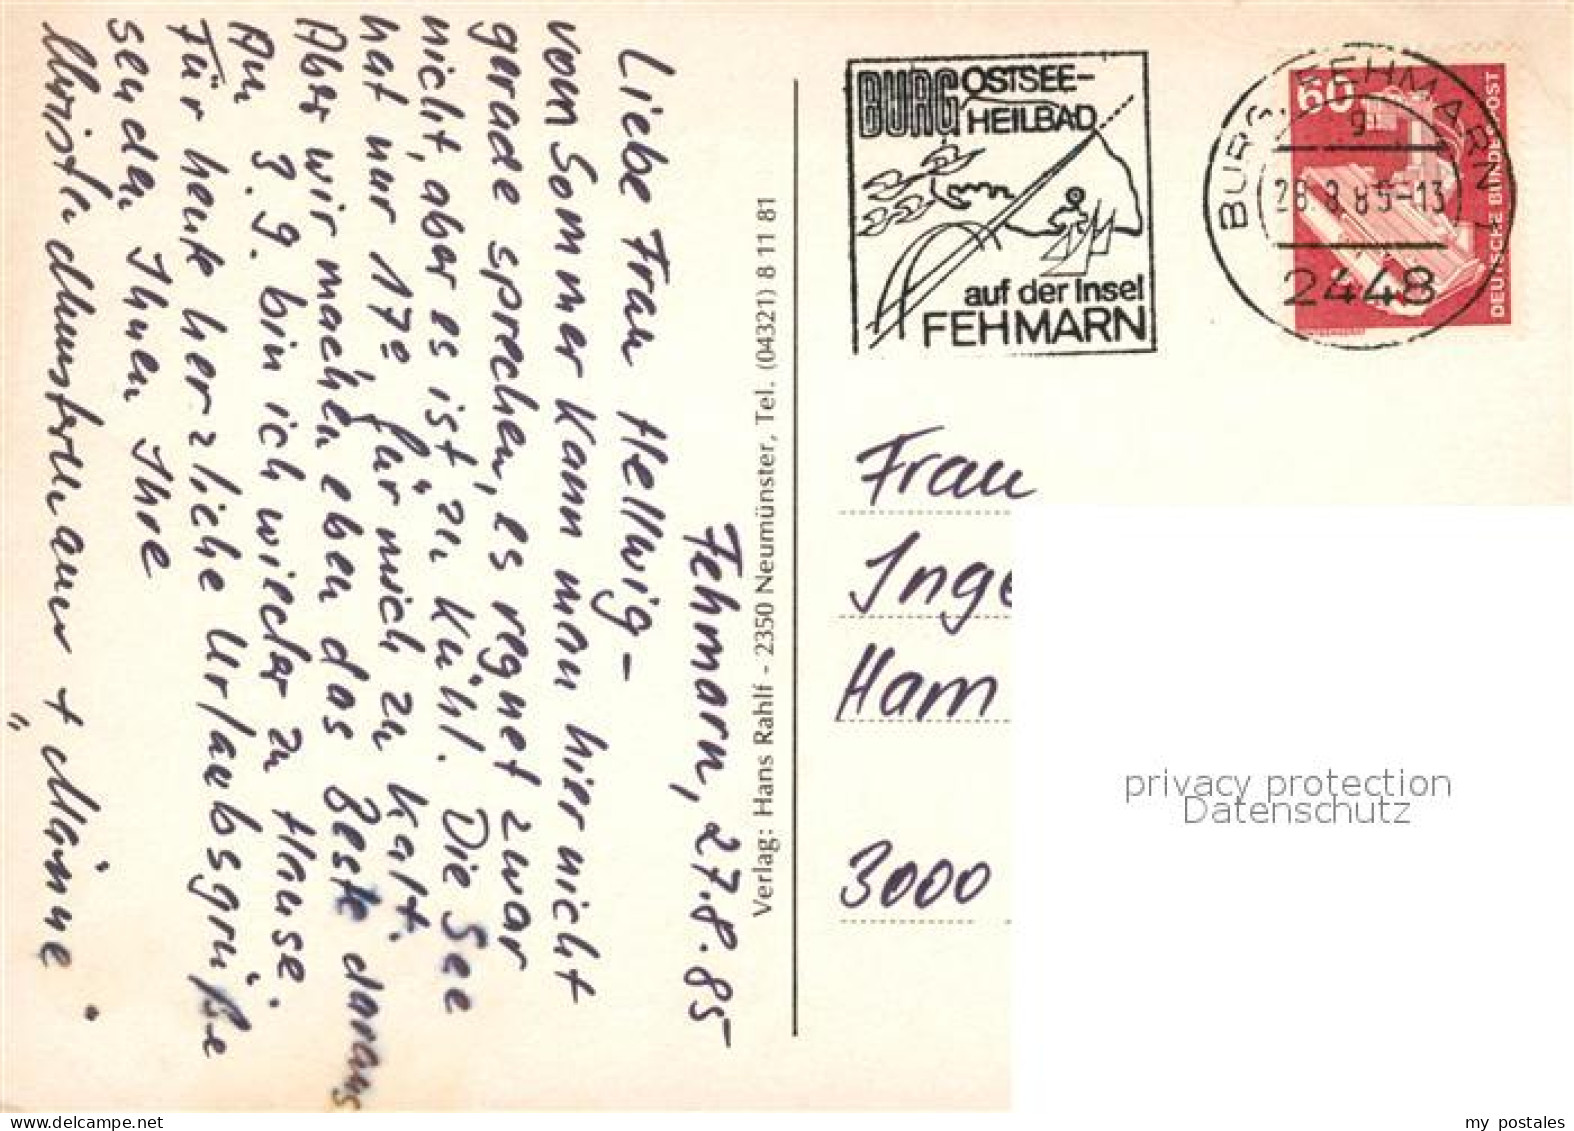 Fehmarn, 27.8.85
Liebe Frau Hellwig –
vom Sommer kann man hier nicht
gerade sprechen, es regnet zwar
nicht, aber es ist zu kühl. Die See
hat nur 17°, für mich zu kalt.
Aber wir machen eben das Beste daraus
Am 3.9. bin ich wieder zu Hause.
Für heute herzliche Urlaubsgrüße
senden Ihnen Ihre
+ "Männe"
Verlag: Hans Rahlf - 2350 Neumünster, Tel. (04321) 8 11 81
BURG OSTSEE-
HEILBAD
auf der Insel
FEHMARN
BURG, FEHMARN 1
91
28.8.85-13
2448
60
DEUTSCHE BUNDESPOST
Frau
Inge
Ham
3000
privacy protection
Datenschutz
my postales